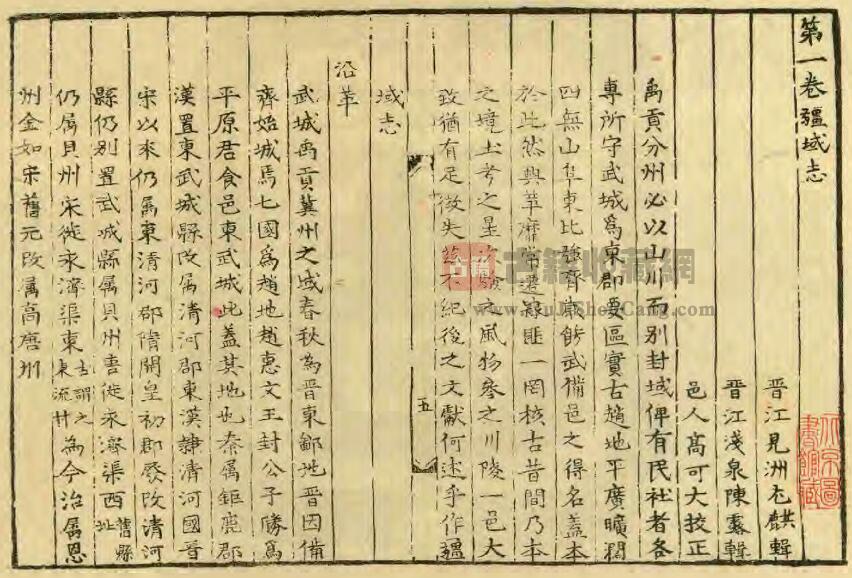 第一卷疆域志
晋江見洲尤麒輯
晋江淺泉陳露輯
邑人高可大校正
禹貢分州必以山川而别封域俾有民社者各
專所守武城為東郡要區實古趙地平廣曠濶
四無山阜東比強齊嚴餙武備邑之得名盖本
於此然興革靡常遷
匪一罔核古昔間乃本
之境土考之星
之風物叅之川陵一邑大
致猶有足徵失
不紀後之文獻何述乎作疆
域志
沿革
武城禹貢冀州之域春秋為晋東鄙地晋因備
齊始城焉七國為趙地趙惠文王封公子勝為
平原君食邑東武城此葢其地也秦属鉅鹿郡
漢置東武城縣改属清河郡東漢隷清河國晋
宋以來仍属東清河郡隋開皇初郡廢改清河
縣仍别置武城縣属貝州唐徙永濟渠西舊縣址
仍属貝州宋徙永濟渠東古謂之東流廿為今治属恩
州金如宋舊元改属高唐州
五
古籍
古籍收藏網
www.GuJiShouCang.com